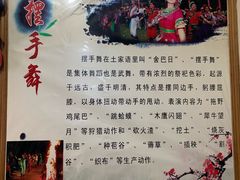 摆手舞
摆手舞在土家语里叫“舍巴日”、“摆手舞”
是集体舞蹈也是武舞，带有浓烈的祭祀色彩，起源
于远古，盛于明清，其特点是摆同边手，躬腰屈
膝，以身体扭动带动手的甩动。表演内容为“拖野
鸡尾巴”、“跳蛤蟆”、“木鹰闪翅”、“犀牛望
月”等狩猎动作和“砍火渣”、“挖土”、“烧灰
积肥”、“种苞谷”、“薅草”、“插秧”、“割
谷”、“织布”等生产动作。